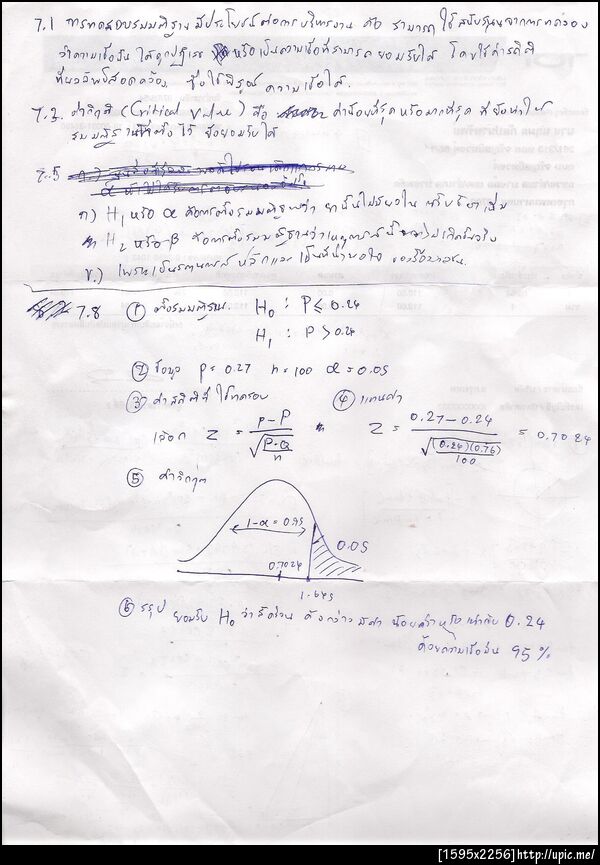 7.1 การทดสอบสมมติฐาน มีประโยชน์ต่อการบริหารงาน คือ สามารถใช้สนับสนุนจากการทดลอง
ว่าความเชื่อนั้น ได้ถูกปฏิเสธ หรือเป็นความเชื่อที่สามารถยอมรับได้ โดยใช้ค่าสถิติ
ซึ่งใช้พิสูจน์ ความเชื่อได้.
7.2. ค่าวิกฤติ (Critical Value) คือ ค่าน้อยที่สุด หรือมากที่สุด ที่ยังทำให้
สมมติฐานที่ตั้งไว้ ยังยอมรับได้
7.5
ก) H₁ หรือ α คือการตั้งสมมติฐานว่า
H₂ หรือ β คือการตั้งสมมติฐานว่าเหตุการณ์นี้
ข.)
7.8 ① ตั้งสมมติฐาน. H₀ : P ≤ 0.24
H₁ : P > 0.24
② ข้อมูล p = 0.27 n = 100 α = 0.05
③ ค่าสถิติที่ใช้ทดสอบ ④ แทนค่า
เลือก Z = p - P / √(P·Q / n) Z = 0.27 - 0.24 / √((0.24)(0.76) / 100) = 0.7024
⑤ ค่าวิกฤต
1-α = 0.95
0.05
0.7024
1.645
⑥ สรุป ยอมรับ H₀ ว่าสัดส่วน ดังกล่าวมีค่า น้อยกว่าหรือเท่ากับ 0.24
ด้วยความเชื่อมั่น 95 %
[1595x2256]http://upic.me/